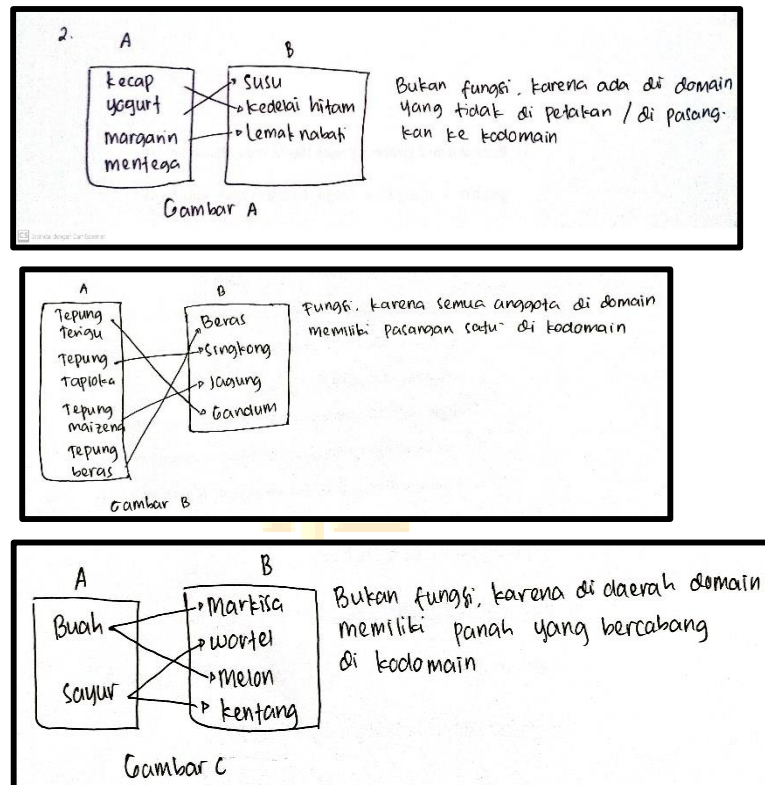 2.
A
B
kecap
yogurt
margarin
mentega
susu
kedelai hitam
Lemak nabati
Bukan fungsi, karena ada di domain
yang tidak di petakan / di pasang-
kan ke kodomain
Gambar A
A
B
Tepung
Terigu
Tepung
Tapioka
Tepung
maizena
Tepung
beras
Beras
Singkong
Jagung
Gandum
Fungsi, karena semua anggota di domain
memiliki pasangan satu- di kodomain
Gambar B
A
B
Buah
sayur
Markisa
wortel
melon
kentang
Bukan fungsi, karena di daerah domain
memiliki panah yang bercabang
di kodomain
Gambar C